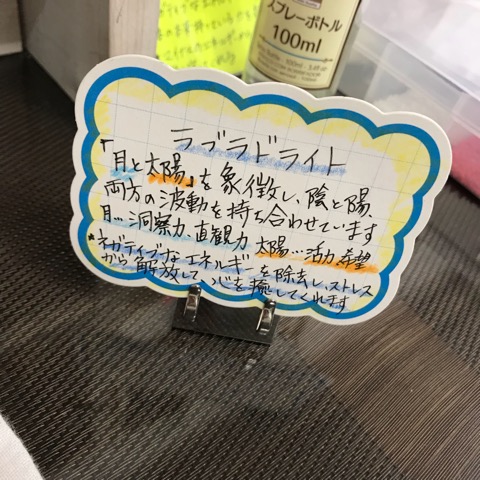 スプレーボトル
100ml
ラブラドライト
「月と太陽」を象徴し、陰と陽、
両方の波動を持ち合わせています
月…洞察力、直観力 太陽…活力、希望
*ネガティブなエネルギーを除去し、ストレス
から解放して心を癒してくれます